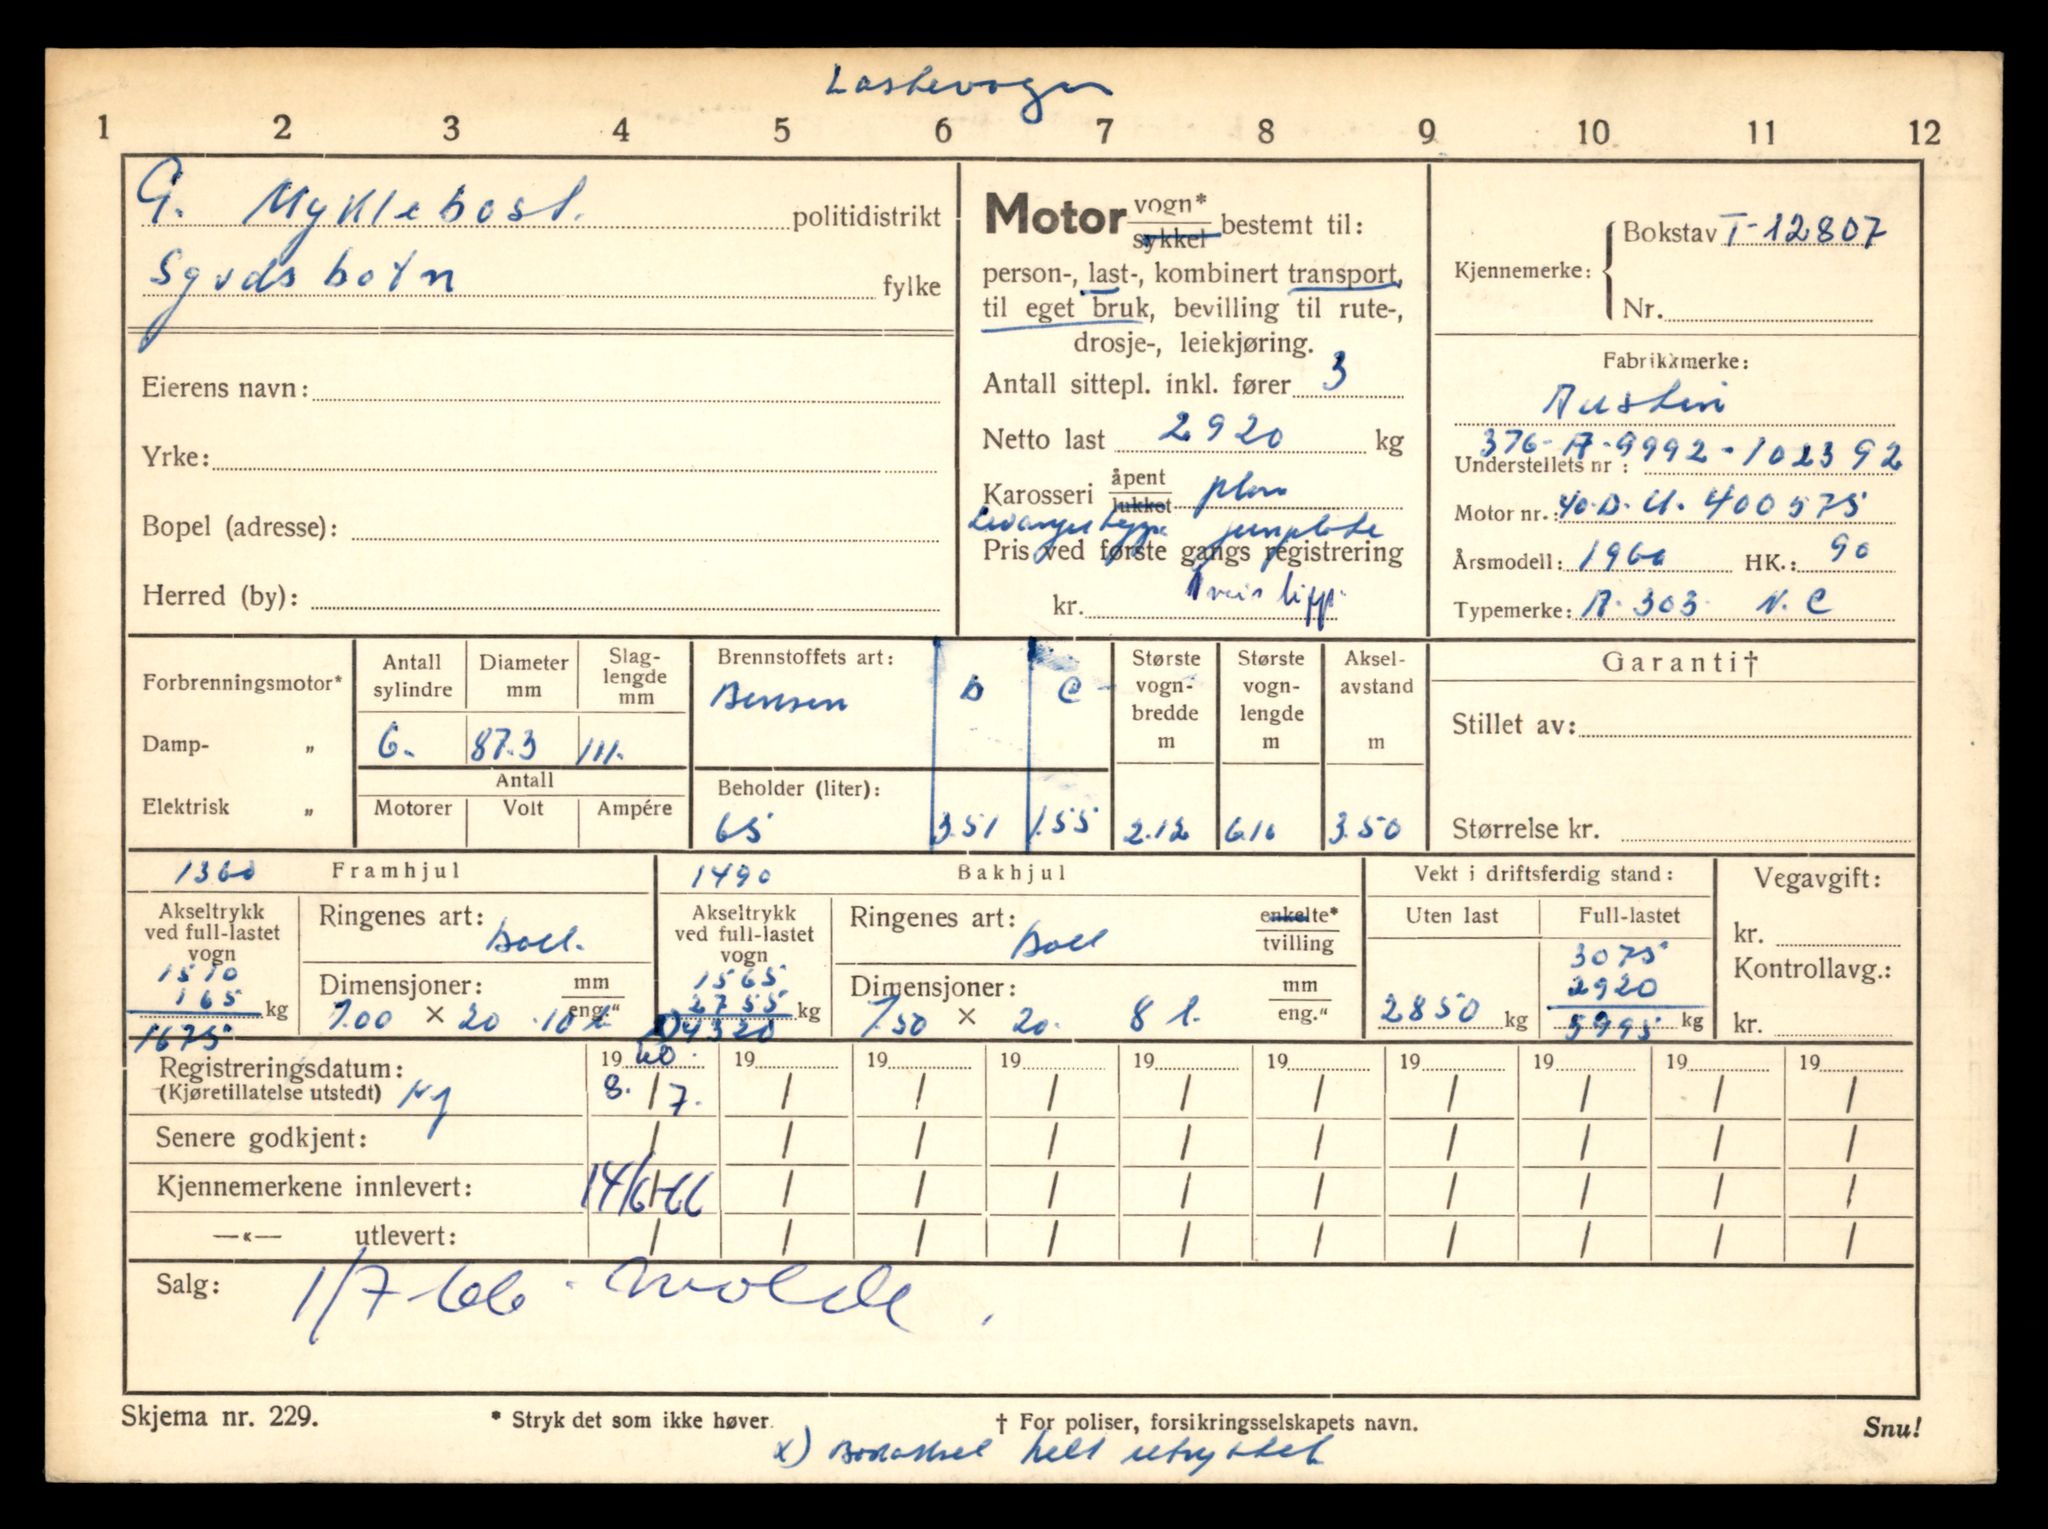 Lastevogn
1 2 3 4 5 6 7 8 9 10 11 12
G. Myklebost. politidistrikt
fylke
Eierens navn:
Yrke:
Bopel (adresse):
Herred (by):
Motor vogn* sykkel bestemt til:
person-, last-, kombinert transport,
til eget bruk, bevilling til rute-,
drosje-, leiekjøring.
Antall sittepl. inkl. fører 3
Netto last 2920 kg
Karosseri åpent lukket plan
Pris ved første gangs registrering
kr.
Kjennemerke: Bokstav T-12807
Nr.
Fabrikkmerke:
Austin
376-A-9992-102392
Understellets nr :
Motor nr.: 40.D.U. 400575
Årsmodell: 1960 HK.: 90
Typemerke: A. 303. N.C
Forbrenningsmotor*
Damp- „
Elektrisk „
Antall sylindre Diameter mm Slag-lengde mm
6. 87.3 111.
Antall
Motorer Volt Ampére
Brennstoffets art: B C
Bensin
Beholder (liter):
65 3.51 1.55
Største vogn-bredde m
2.12
Største vogn-lengde m
6.10
Aksel-avstand m
3.50
Garanti†
Stillet av:
Størrelse kr.
1360 Framhjul
Akseltrykk
ved full-lastet
vogn
1510
165 kg
1675
Ringenes art:
Dimensjoner: mm eng."
7.00 × 20 .10 l.
1490 Bakhjul
Akseltrykk
ved full-lastet
vogn
1565
2755 kg
x) 4320
Ringenes art: enkelte* tvilling
Dimensjoner: mm eng."
7.50 × 20. 8 l.
Vekt i driftsferdig stand:
Uten last Full-lastet
3075
2920
2850 kg 5995 kg
Vegavgift:
kr.
Kontrollavg.:
kr.
Registreringsdatum: 19 60. 19 19 19 19 19 19 19 19 19
(Kjøretillatelse utstedt) Ny 8. / 7. / / / / / / / / /
Senere godkjent: / / / / / / / / / /
Kjennemerkene innlevert: 14/6-66 / / / / / / / / /
—«— utlevert: / / / / / / / / / /
Salg: 1/7-66. Molde.
Skjema nr. 229. * Stryk det som ikke høver. † For poliser, forsikringsselskapets navn. Snu!
x) Bakaksel helt utnyttet